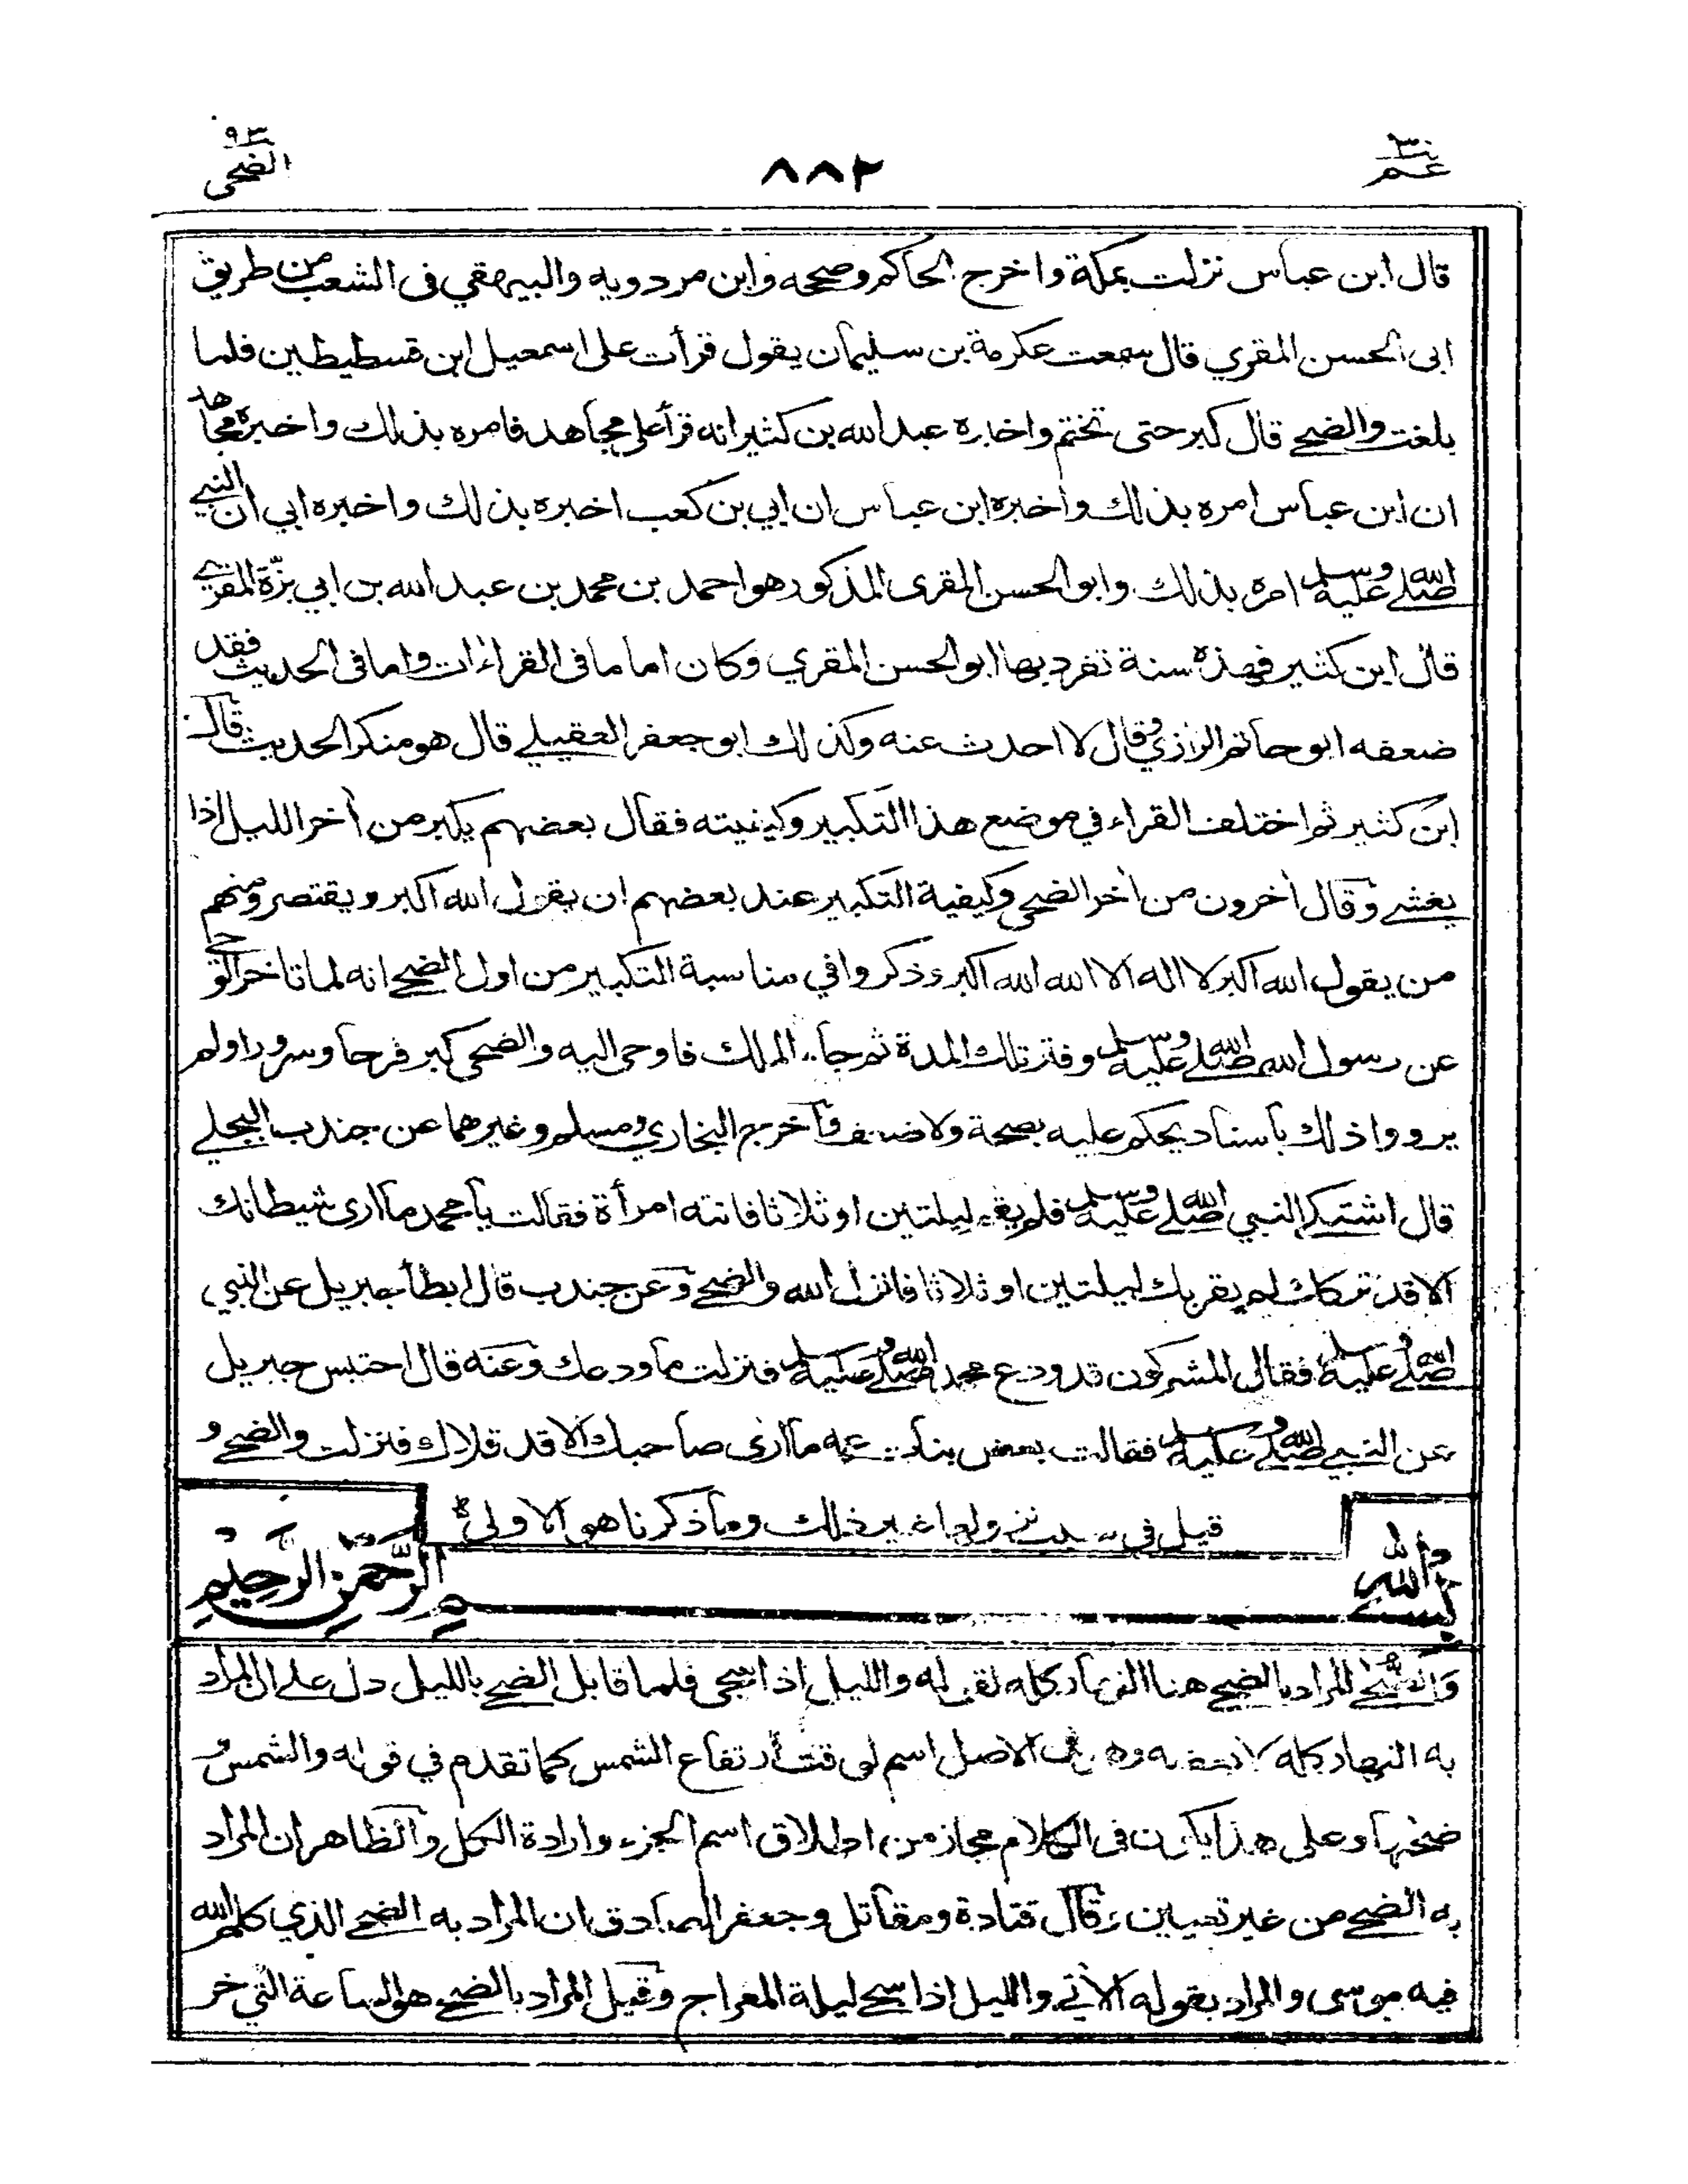 ٣٠
عم
٨٨٢
٩٣
الضحى
قال ابن عباس نزلت بمكة واخرج الحاكم وصححه وابن مردويه والبيهقي فى الشعب من طريق
ابى الحسن المقري قال سمعت عكرمة بن سليمان يقول قرأت على اسمعيل ابن قسطيطين فلما
بلغت والضحى قال كبر حتى تختم واخبره عبد الله بن كثير انه قرأ على مجاهد فامره بذلك واخبره مجاهد
ان ابن عباس امره بذلك واخبره ابن عباس ان ابي بن كعب اخبره بذلك واخبره ابي ان النبي
صلى الله عليه وسلم امره بذلك وابو الحسن المقرى المذكور هو احمد بن محمد بن عبد الله بن ابي بزّة المقري
قال ابن كثير فهذه سنة تفرد بها ابو الحسن المقري وكان اماما فى القراءات واما فى الحديث فقد
ضعفه ابو حاتم الرازي وقال لا احدث عنه وكذلك ابو جعفر العقيلي قال هو منكر الحديث قال
ابن كثير ثم اختلف القراء في موضع هذا التكبير وكيفيته فقال بعضهم يكبر من أخر الليل اذا
يغشى وقال أخرون من أخر الضحى وكيفية التكبير عند بعضهم ان يقول الله اكبر ويقتصر ومنهم
من يقول الله اكبر لا اله الا الله الله اكبر وذكروا في مناسبة التكبير من اول الضحى انه لما تاخر الوحي
عن رسول الله صلى الله عليه وسلم وفتر تلك المدة ثم جاء الملك فاوحى اليه والضحى كبر فرحا وسرورا ولم
يرووا ذلك باسناد يحكم عليه بصحة ولا ضعف وأخرج البخاري ومسلم وغيرهما عن جندب البجلي
قال اشتكى النبي صلى الله عليه وسلم فلم يقم ليلتين او ثلاثا فاتته امرأة فقالت يا محمد ما ارى شيطانك
الا قد تركك لم يقربك ليلتين او ثلاثا فانزل الله والضحى وعن جندب قال ابطأ جبريل عن النبي
صلى الله عليه وسلم فقال المشركون قد ودع محمد صلى الله عليه وسلم فنزلت ما ودعك وعنه قال احتبس جبريل
عن النبي صلى الله عليه وسلم فقالت بعض بنات عمه ما ارى صاحبك الا قد قلاك فنزلت والضحى و
قيل فى سبب نزولها غير ذلك وما ذكرنا هو الاولى
بسم الله الرحمن الرحيم
وَالضُّحٰى المراد بالضحى هنا النهار كله لقوله والليل اذا سجى فلما قابل الضحى بالليل دل على ان المراد
به النهار كله لا بعضه وهو فى الاصل اسم لوقت ارتفاع الشمس كما تقدم في قوله والشمس و
ضحٰها وعلى هذا يكون فى الكلام مجاز من اطلاق اسم الجزء وارادة الكل والظاهر ان المراد
به الضحى من غير تعيين وقال قتادة ومقاتل وجعفر الصادق ان المراد به الضحى الذي كلم الله
فيه موسى والمراد بقوله الأتي والليل اذا سجى ليلة المعراج وقيل المراد بالضحى هو الساعة التي خر